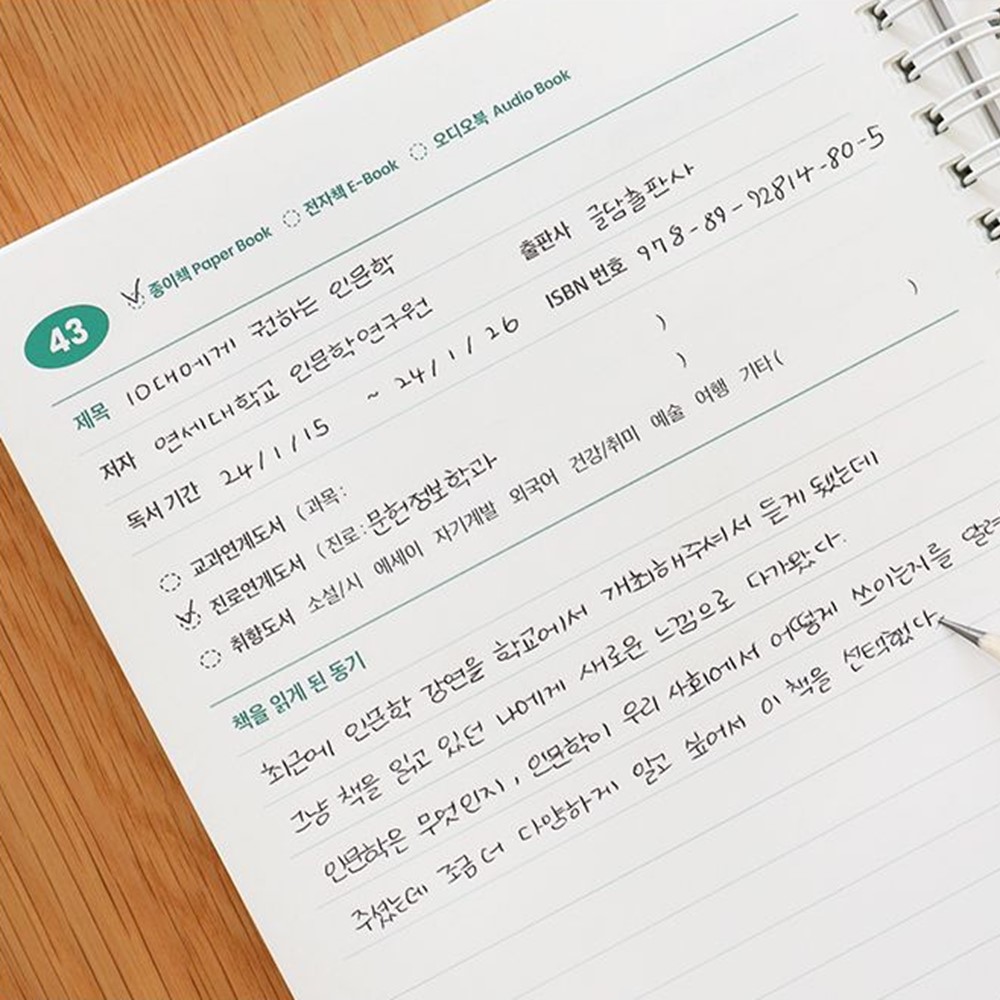 종이책 Paper Book 전자책 E-Book 오디오북 Audio Book
43
제목 10대에게 권하는 인문학 출판사 글담출판사
저자 연세대학교 인문학연구원 ISBN 번호 978-89-92814-80-5
독서 기간 24/1/15 ~ 24/1/26
교과연계도서 (과목: )
진로연계도서 (진로: 문헌정보학과 )
취향도서 소설/시 에세이 자기계발 외국어 건강/취미 예술 여행 기타( )
책을 읽게 된 동기
최근에 인문학 강연을 학교에서 개최해주셔서 듣게 됐는데
그냥 책을 읽고 있던 나에게 새로운 느낌으로 다가왔다.
인문학은 무엇인지, 인문학이 우리 사회에서 어떻게 쓰이는지를 알려
주셨는데 조금 더 다양하게 알고 싶어서 이 책을 선택했다.